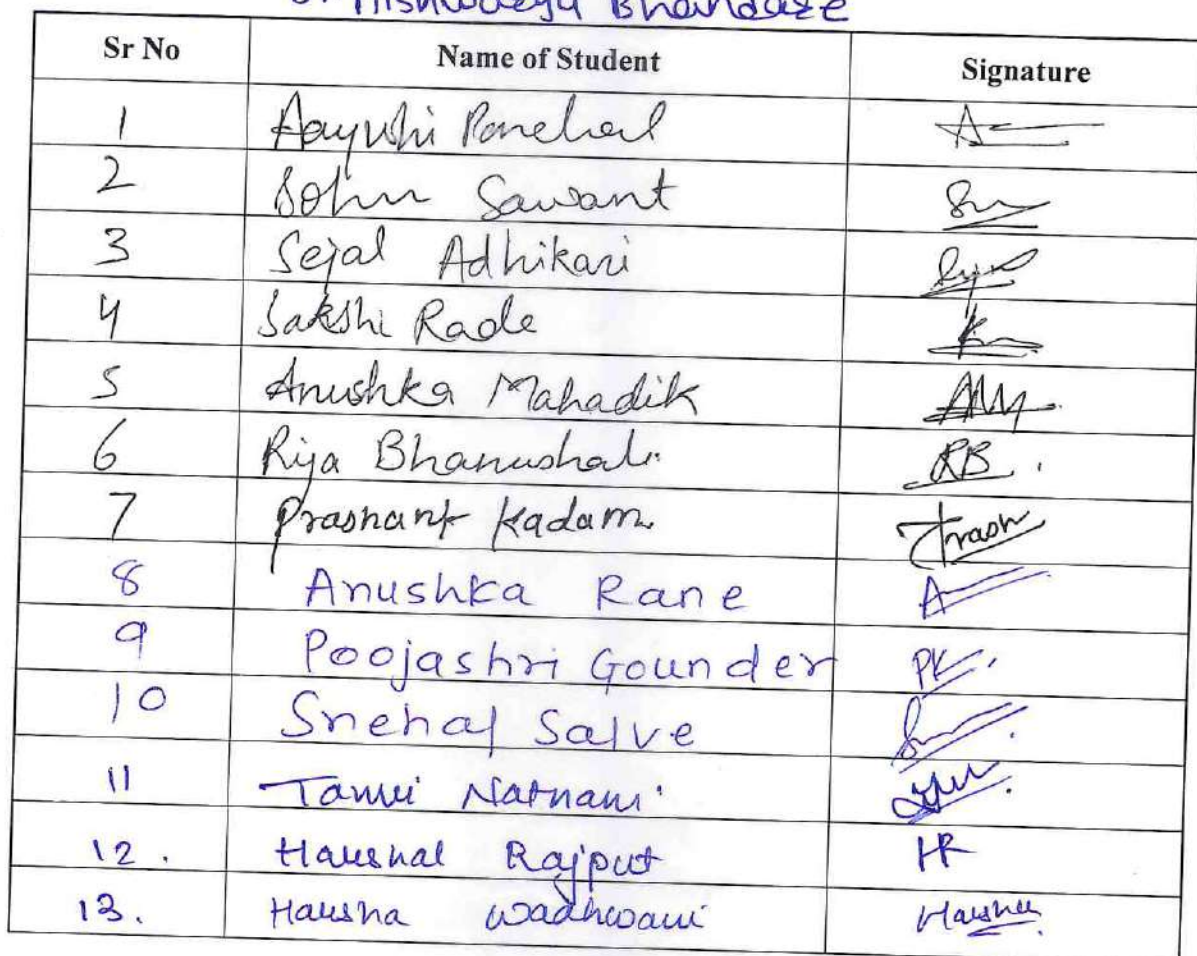 Aishwarya Bhandare
Sr No Name of Student Signature
1 Aayushi Panchal A
2 Sohm Sawant
3 Sejal Adhikari
4 Sakshi Rade
5 Anushka Mahadik
6 Riya Bhanushali RB.
7 Prashant Kadam. Prash
8 Anushka Rane A
9 Poojashri Gounder PK.
10 Snehal Salve
11 Tanvi Natnani
12. Harshal Rajput HR
13. Harsha Wadhwani Harsha